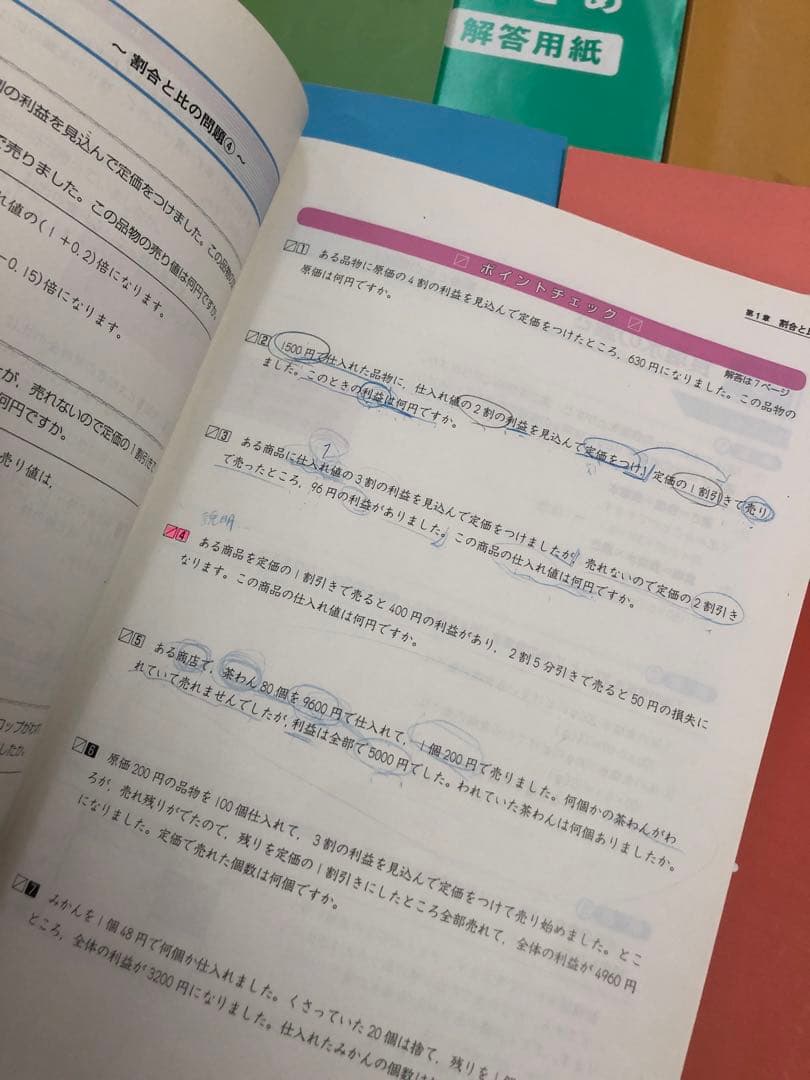 め
解答用紙
～ 割合と比の問題④ ～
の利益を見込んで定価をつけました。この品物
で売りました。この品物の売り値は何円ですか。
れ値の(1+0.2)倍になります。
-0.15)倍になります。
が、売れないので定価の1割引き
何円ですか。
売り値は、
第1章 割合と
ポイントチェック
解答は7ページ
1 ある品物に原価の4割の利益を見込んで定価をつけたところ、630円になりました。この品物の
原価は何円ですか。
2 1500円で仕入れた品物に、仕入れ値の2割の利益を見込んで定価をつけ、定価の1割引きで売り
ました。このときの利益は何円ですか。
1
3 ある商品に仕入れ値の3割の利益を見込んで定価をつけましたが、売れないので定価の2割引き
で売ったところ、96円の利益がありました。この商品の仕入れ値は何円ですか。
説明
4 ある商品を定価の1割引きで売ると400円の利益があり、2割5分引きで売ると50円の損失に
なります。この商品の仕入れ値は何円ですか。
5 ある商店で、茶わん80個を9600円で仕入れて、1個200円で売りました。何個かの茶わんがわ
れていて売れませんでしたが、利益は全部で5000円でした。われていた茶わんは何個ありましたか。
6 原価200円の品物を100個仕入れて、3割の利益を見込んで定価をつけて売り始めました。とこ
ろが、売れ残りがでたので、残りを定価の1割引きにしたところ全部売れて、全体の利益が4960円
になりました。定価で売れた個数は何個ですか。
7 みかんを1個48円で何個か仕入れました。くさっていた20個は捨て、残りを1個
ところ、全体の利益が3200円になりました。仕入れたみかんの個数は